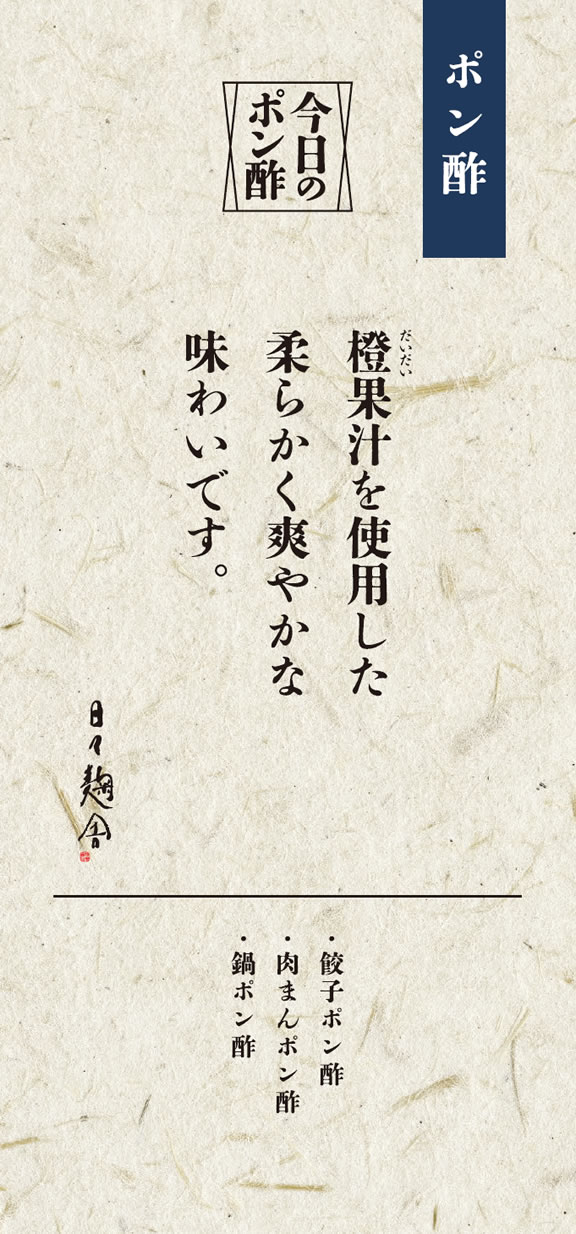 ポン酢
今日の
ポン酢
だいだい
橙果汁を使用した
柔らかく爽やかな
味わいです。
日々麹舎
・餃子ポン酢
・肉まんポン酢
・鍋ポン酢